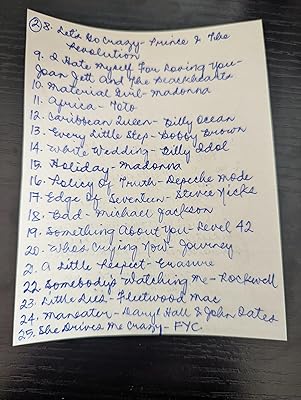 ② 8. Let's Go Crazy - Prince & The
Revolution
9. I Hate Myself For Loving You -
Joan Jett and The Blackhearts
10. Material Girl - Madonna
11. Africa - Toto
12. Caribbean Queen - Billy Ocean
13. Every Little Step - Bobby Brown
14. White Wedding - Billy Idol
15. Holiday - Madonna
16. Policy Of Truth - Depeche Mode
17. Edge Of Seventeen - Stevie Nicks
18. Bad - Michael Jackson
19. Something About You - Level 42
20. Who's Crying Now - Journey
21. A Little Respect - Erasure
22. Somebody's Watching Me - Rockwell
23. Little Lies - Fleetwood Mac
24. Maneater - Daryl Hall & John Oates
25. She Drives Me Crazy - FYC